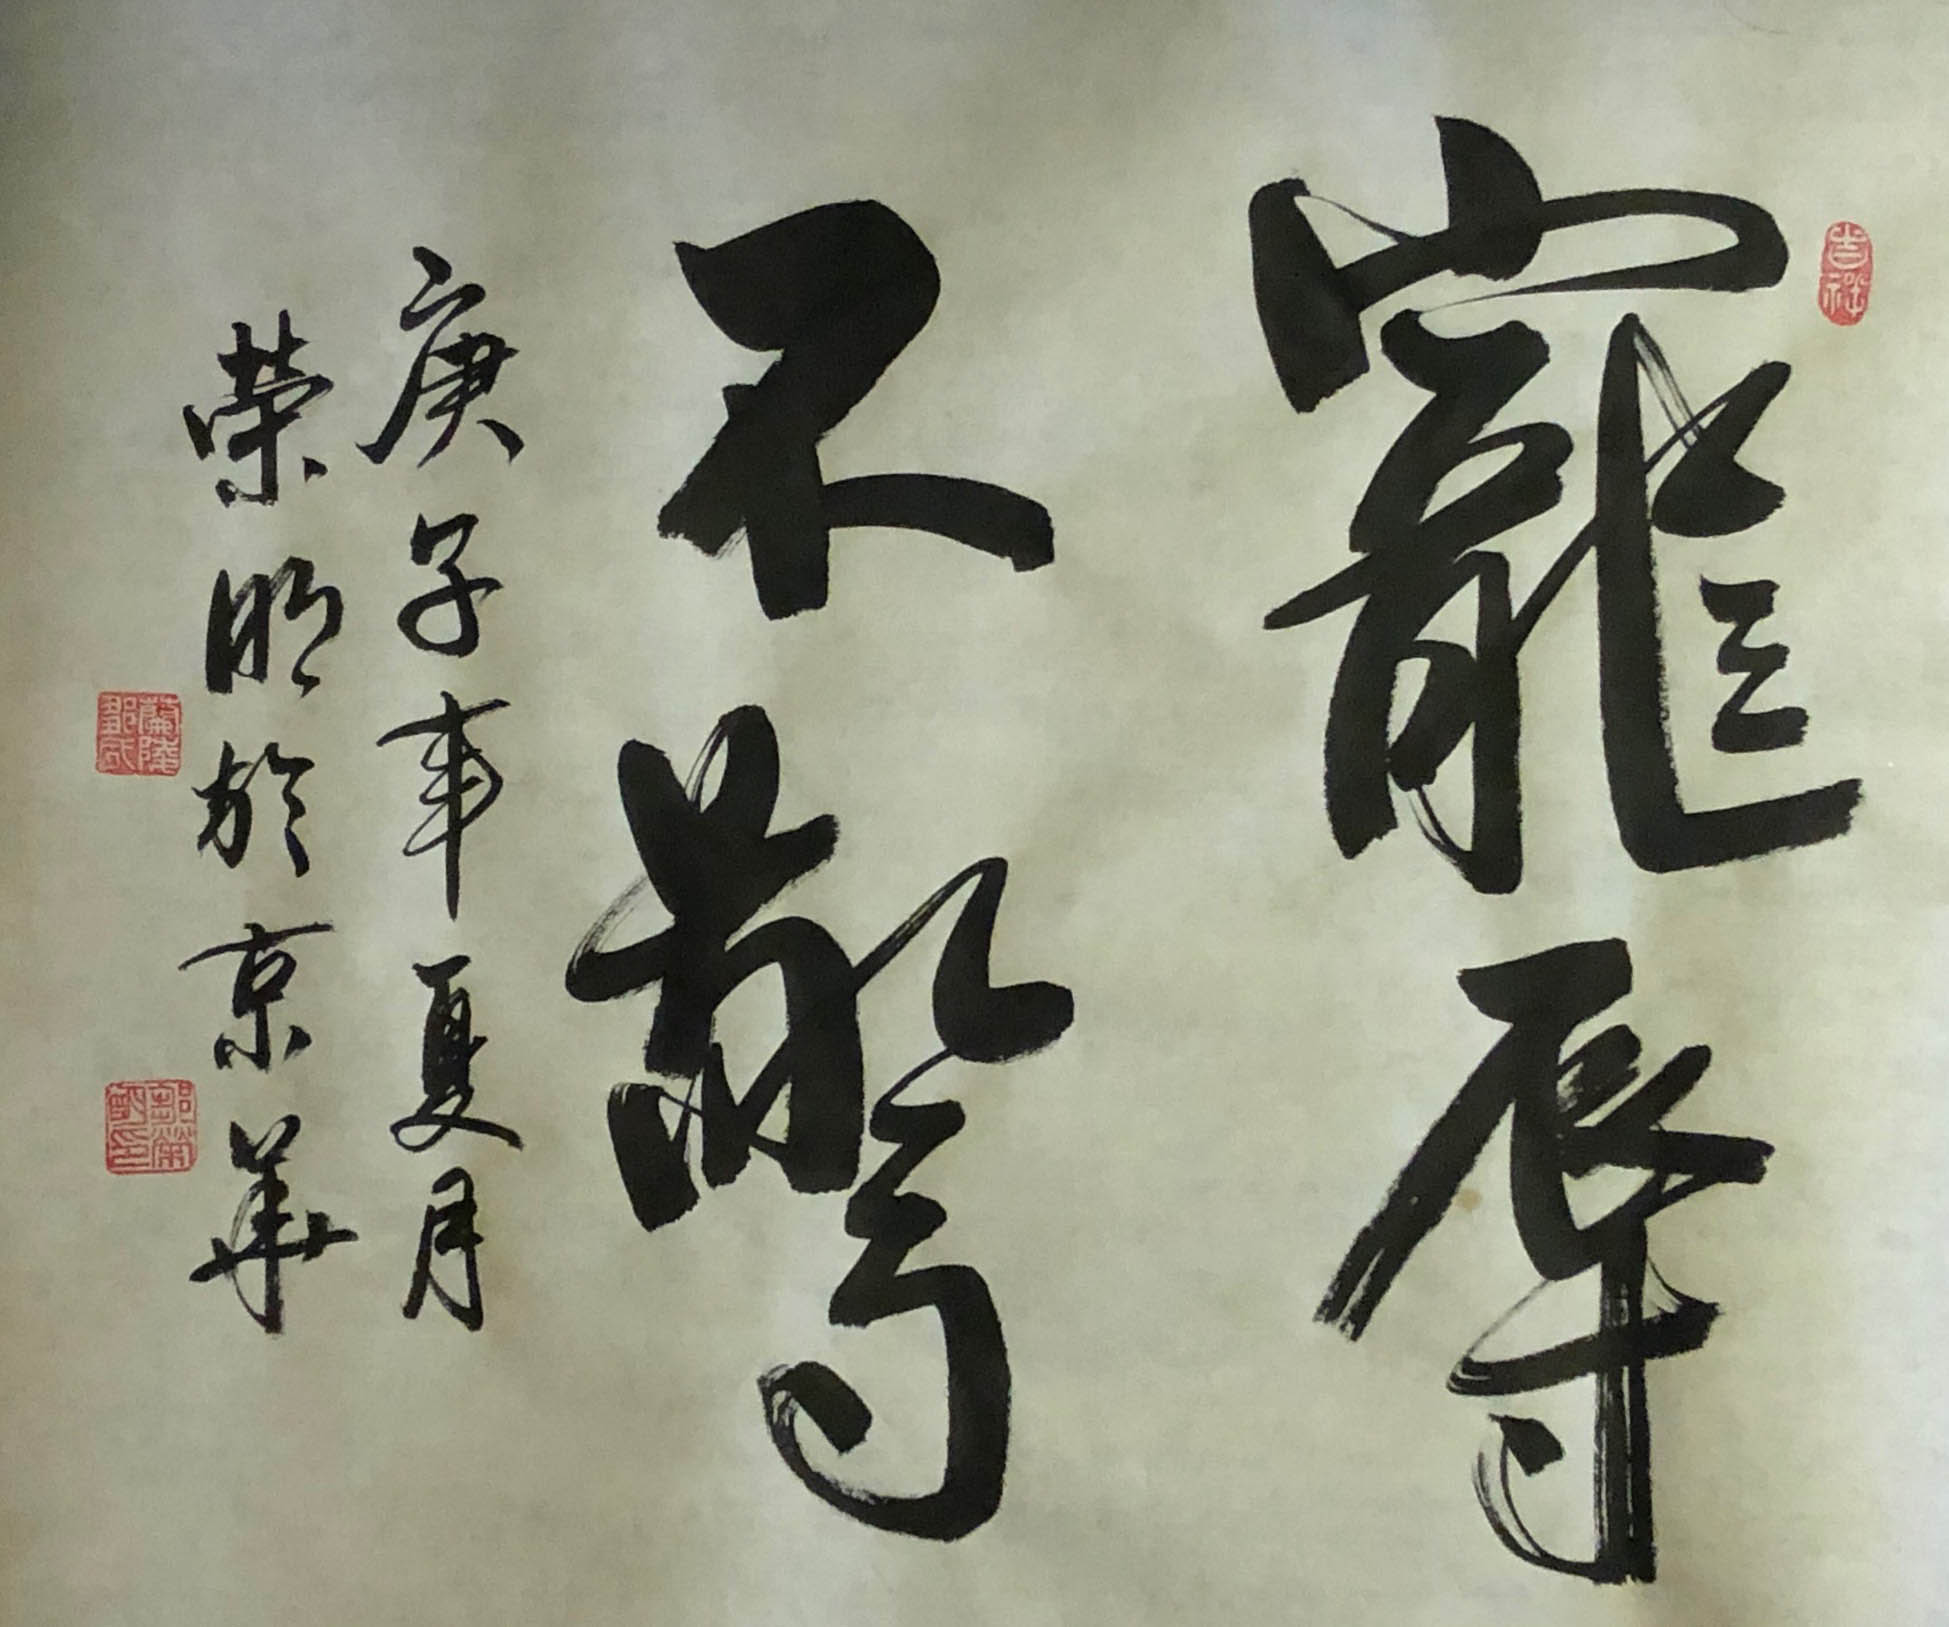 寵辱
不驚
庚子年夏月
榮明於京華
吉祥
蘭陵